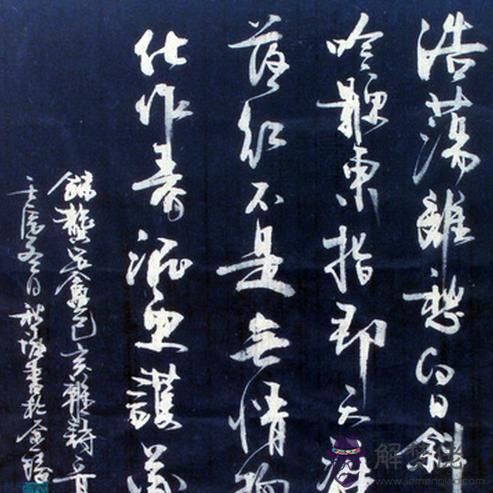 浩蕩離愁白日斜
吟鞭東指即天涯
落紅不是無情物
化作春泥更護花
錄龔定盦己亥雜詩
冬日
書於金陵